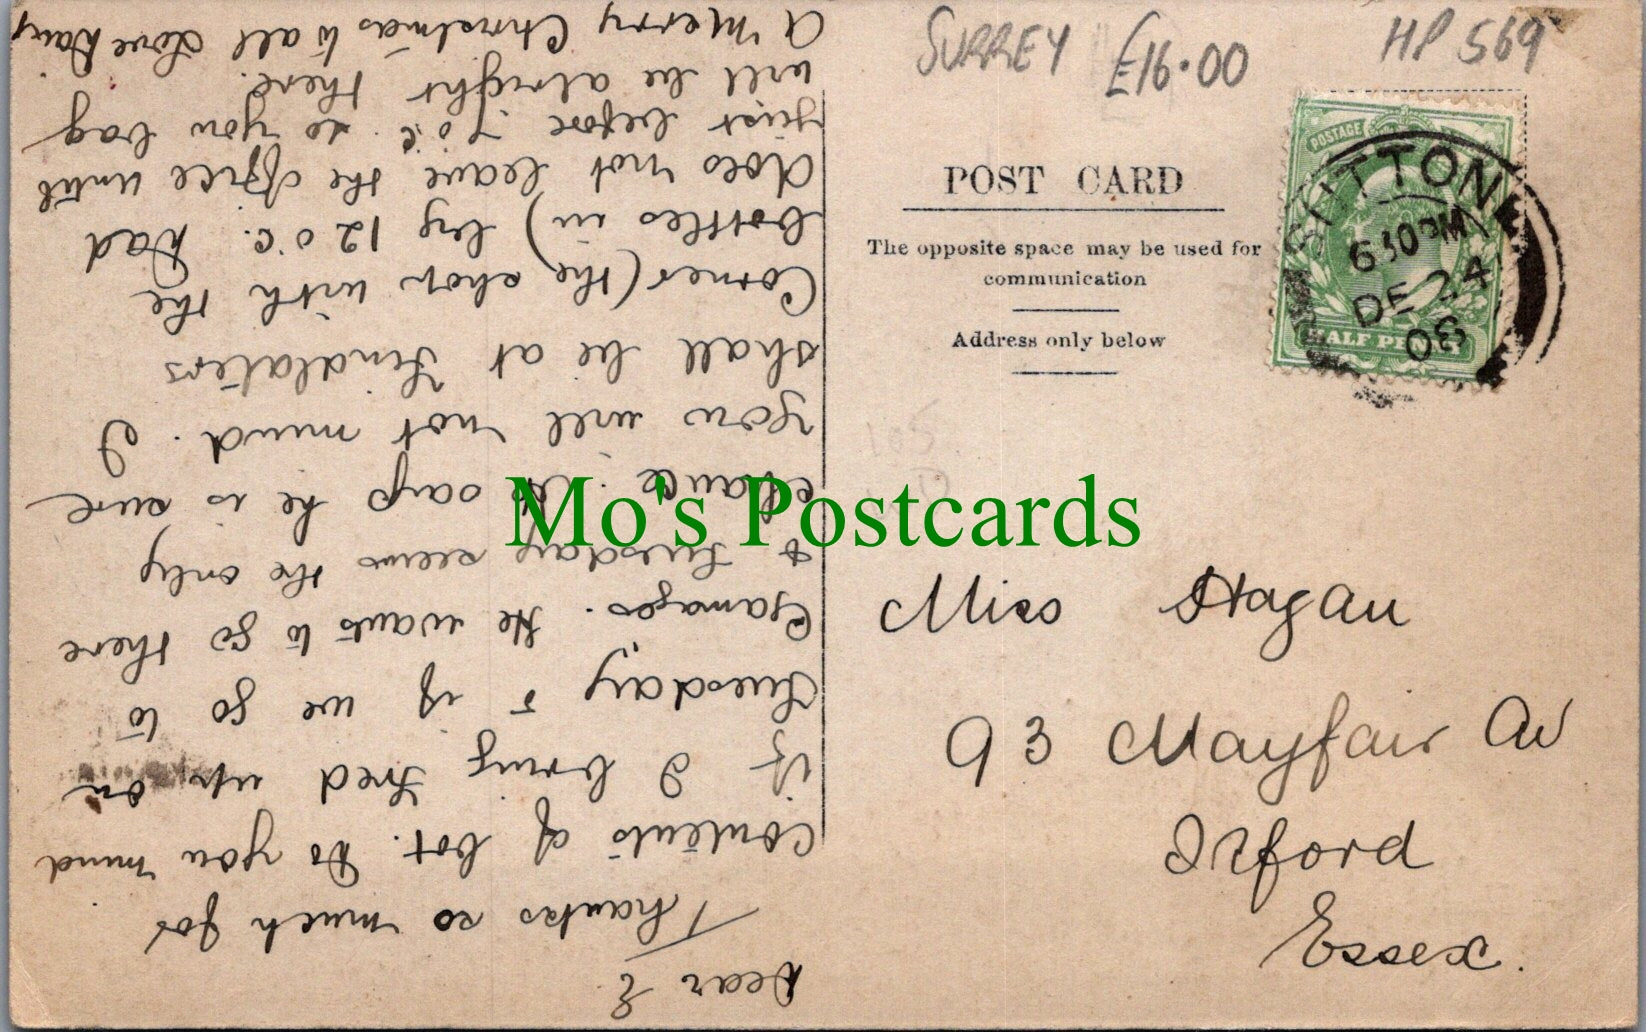 SURREY £16.00 HP 569
POST CARD
The opposite space may be used for
communication
Address only below
POSTAGE
HALF PENNY
SUTTON
630PM
DE 24
08
Mo's Postcards
Miss Hagan
93 Mayfair Av
Ilford
Essex.
Dear E
Thanks so much for
contents of box. Do you mind
if I bring Fred up on
Tuesday & if we go to
Gamages. He wants to go there
& Tuesday seems the only
chance. says he is sure
you will not mind. I
shall be at Findlaters
Corner (the shop with the
bottles in) by 12 o'c. Dad
does not leave the office until
just before 1 o'c. so you bag
will be alright there.
A Merry Christmas to all Love Daisy